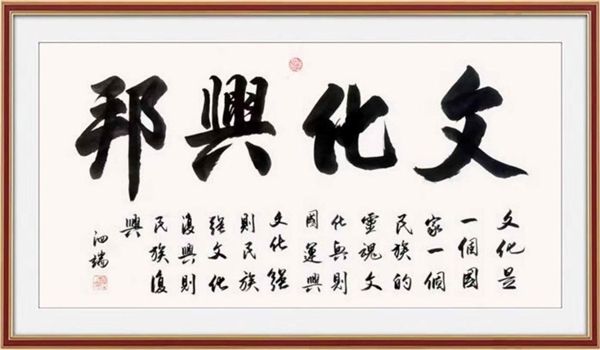 文化興邦
文化是
一個國
家一個
民族的
靈魂文
化興則
國運興
文化強
則民族
強文化
復興則
民族復
興